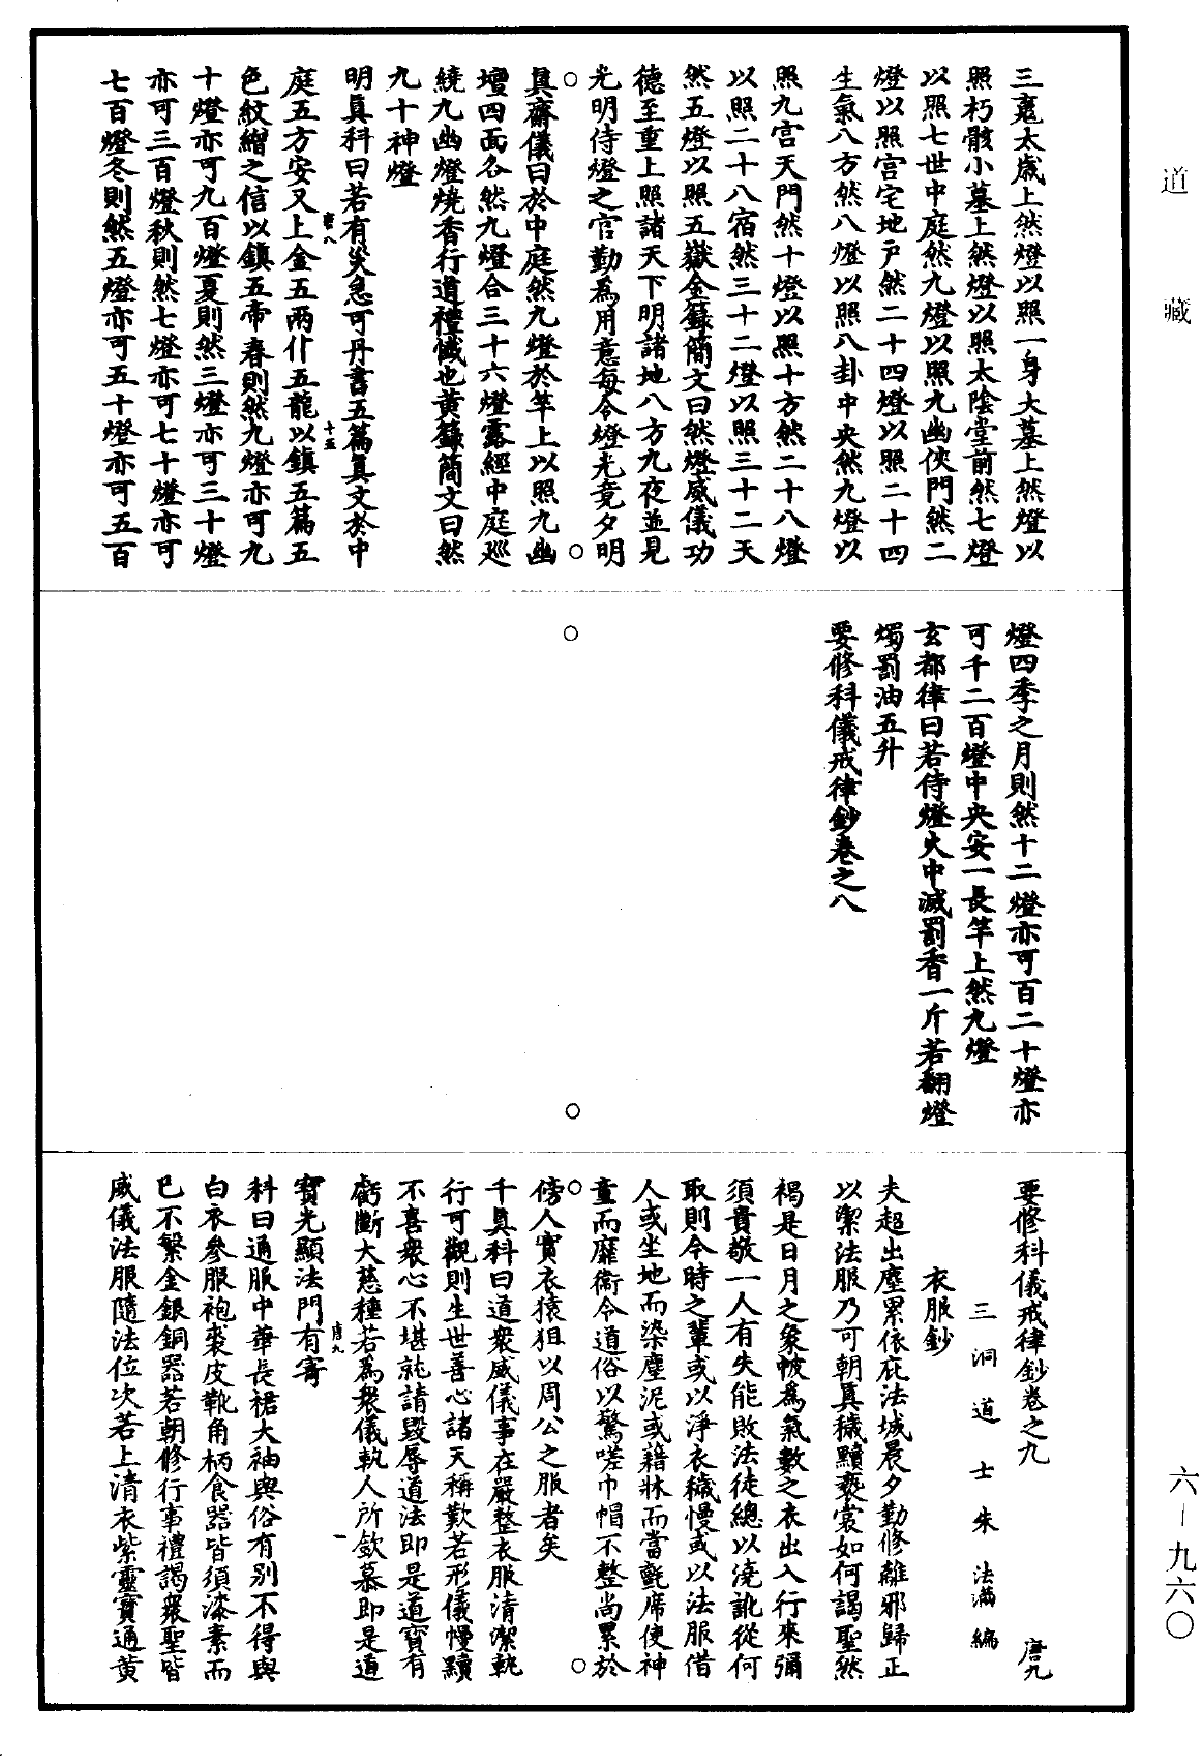 道藏
三魂太歲上然燈以照一身大墓上然燈以
照朽骸小墓上然燈以照太陰堂前然七燈
以照七世中庭然九燈以照九幽俠門然二
燈以照宮宅地戶然二十四燈以照二十四
生氣八方然八燈以照八卦中央然九燈以
照九宮天門然十燈以照十方然二十八燈
以照二十八宿然三十二燈以照三十二天
然五燈以照五嶽金籙簡文曰然燈威儀功
德至重上照諸天下明諸地八方九夜並見
光明侍燈之官勤為用意每令燈光竟夕明
真齋儀曰於中庭然九燈於竿上以照九幽
壇四面各然九燈合三十六燈露經中庭巡
繞九幽燈燒香行道禮懺也黃籙簡文曰然
九十神燈
明真科曰若有災急可丹書五篇真文於中
庭五方安又上金五兩作五龍以鎮五篇五
唐八
十五
色紋繒之信以鎮五帝春則然九燈亦可九
十燈亦可九百燈夏則然三燈亦可三十燈
亦可三百燈秋則然七燈亦可七十燈亦可
七百燈冬則然五燈亦可五十燈亦可五百
燈四季之月則然十二燈亦可百二十燈亦
可千二百燈中央安一長竿上然九燈
玄都律曰若侍燈火中滅罰香一斤若翻燈
燭罰油五升
要修科儀戒律鈔卷之八
要修科儀戒律鈔卷之九
唐九
三洞道士朱法滿編
衣服鈔
夫超出塵累依庇法城晨夕勤修離邪歸正
以潔法服乃可朝真穢黷褻裳如何謁聖然
褐是日月之象帔為氣數之衣出入行來彌
須貴敬一人有失能敗法徒總以澆訛從何
取則今時之輩或以淨衣穢慢或以法服借
人或坐地而染塵泥或藉牀而當氈席使神
童而靡衛令道俗以驚嗟巾帽不整尚累於
傍人寶衣猿狙以周公之服者矣
千真科曰道衆威儀事在嚴整衣服清潔軌
行可觀則生世善心諸天稱歎若形儀慢黷
不喜衆心不堪就請毀辱道法即是道寶有
虧斷大慈種若為衆儀軌人所欽慕即是道
一
寶光顯法門有寄
唐九
科曰通服中華長裙大袖與俗有別不得與
白衣參服袍裘皮靴角柄食器皆須漆素而
已不繫金銀銅器若朝修行事禮謁衆聖皆
威儀法服隨法位次若上清衣紫靈寶通黃
六－九六〇